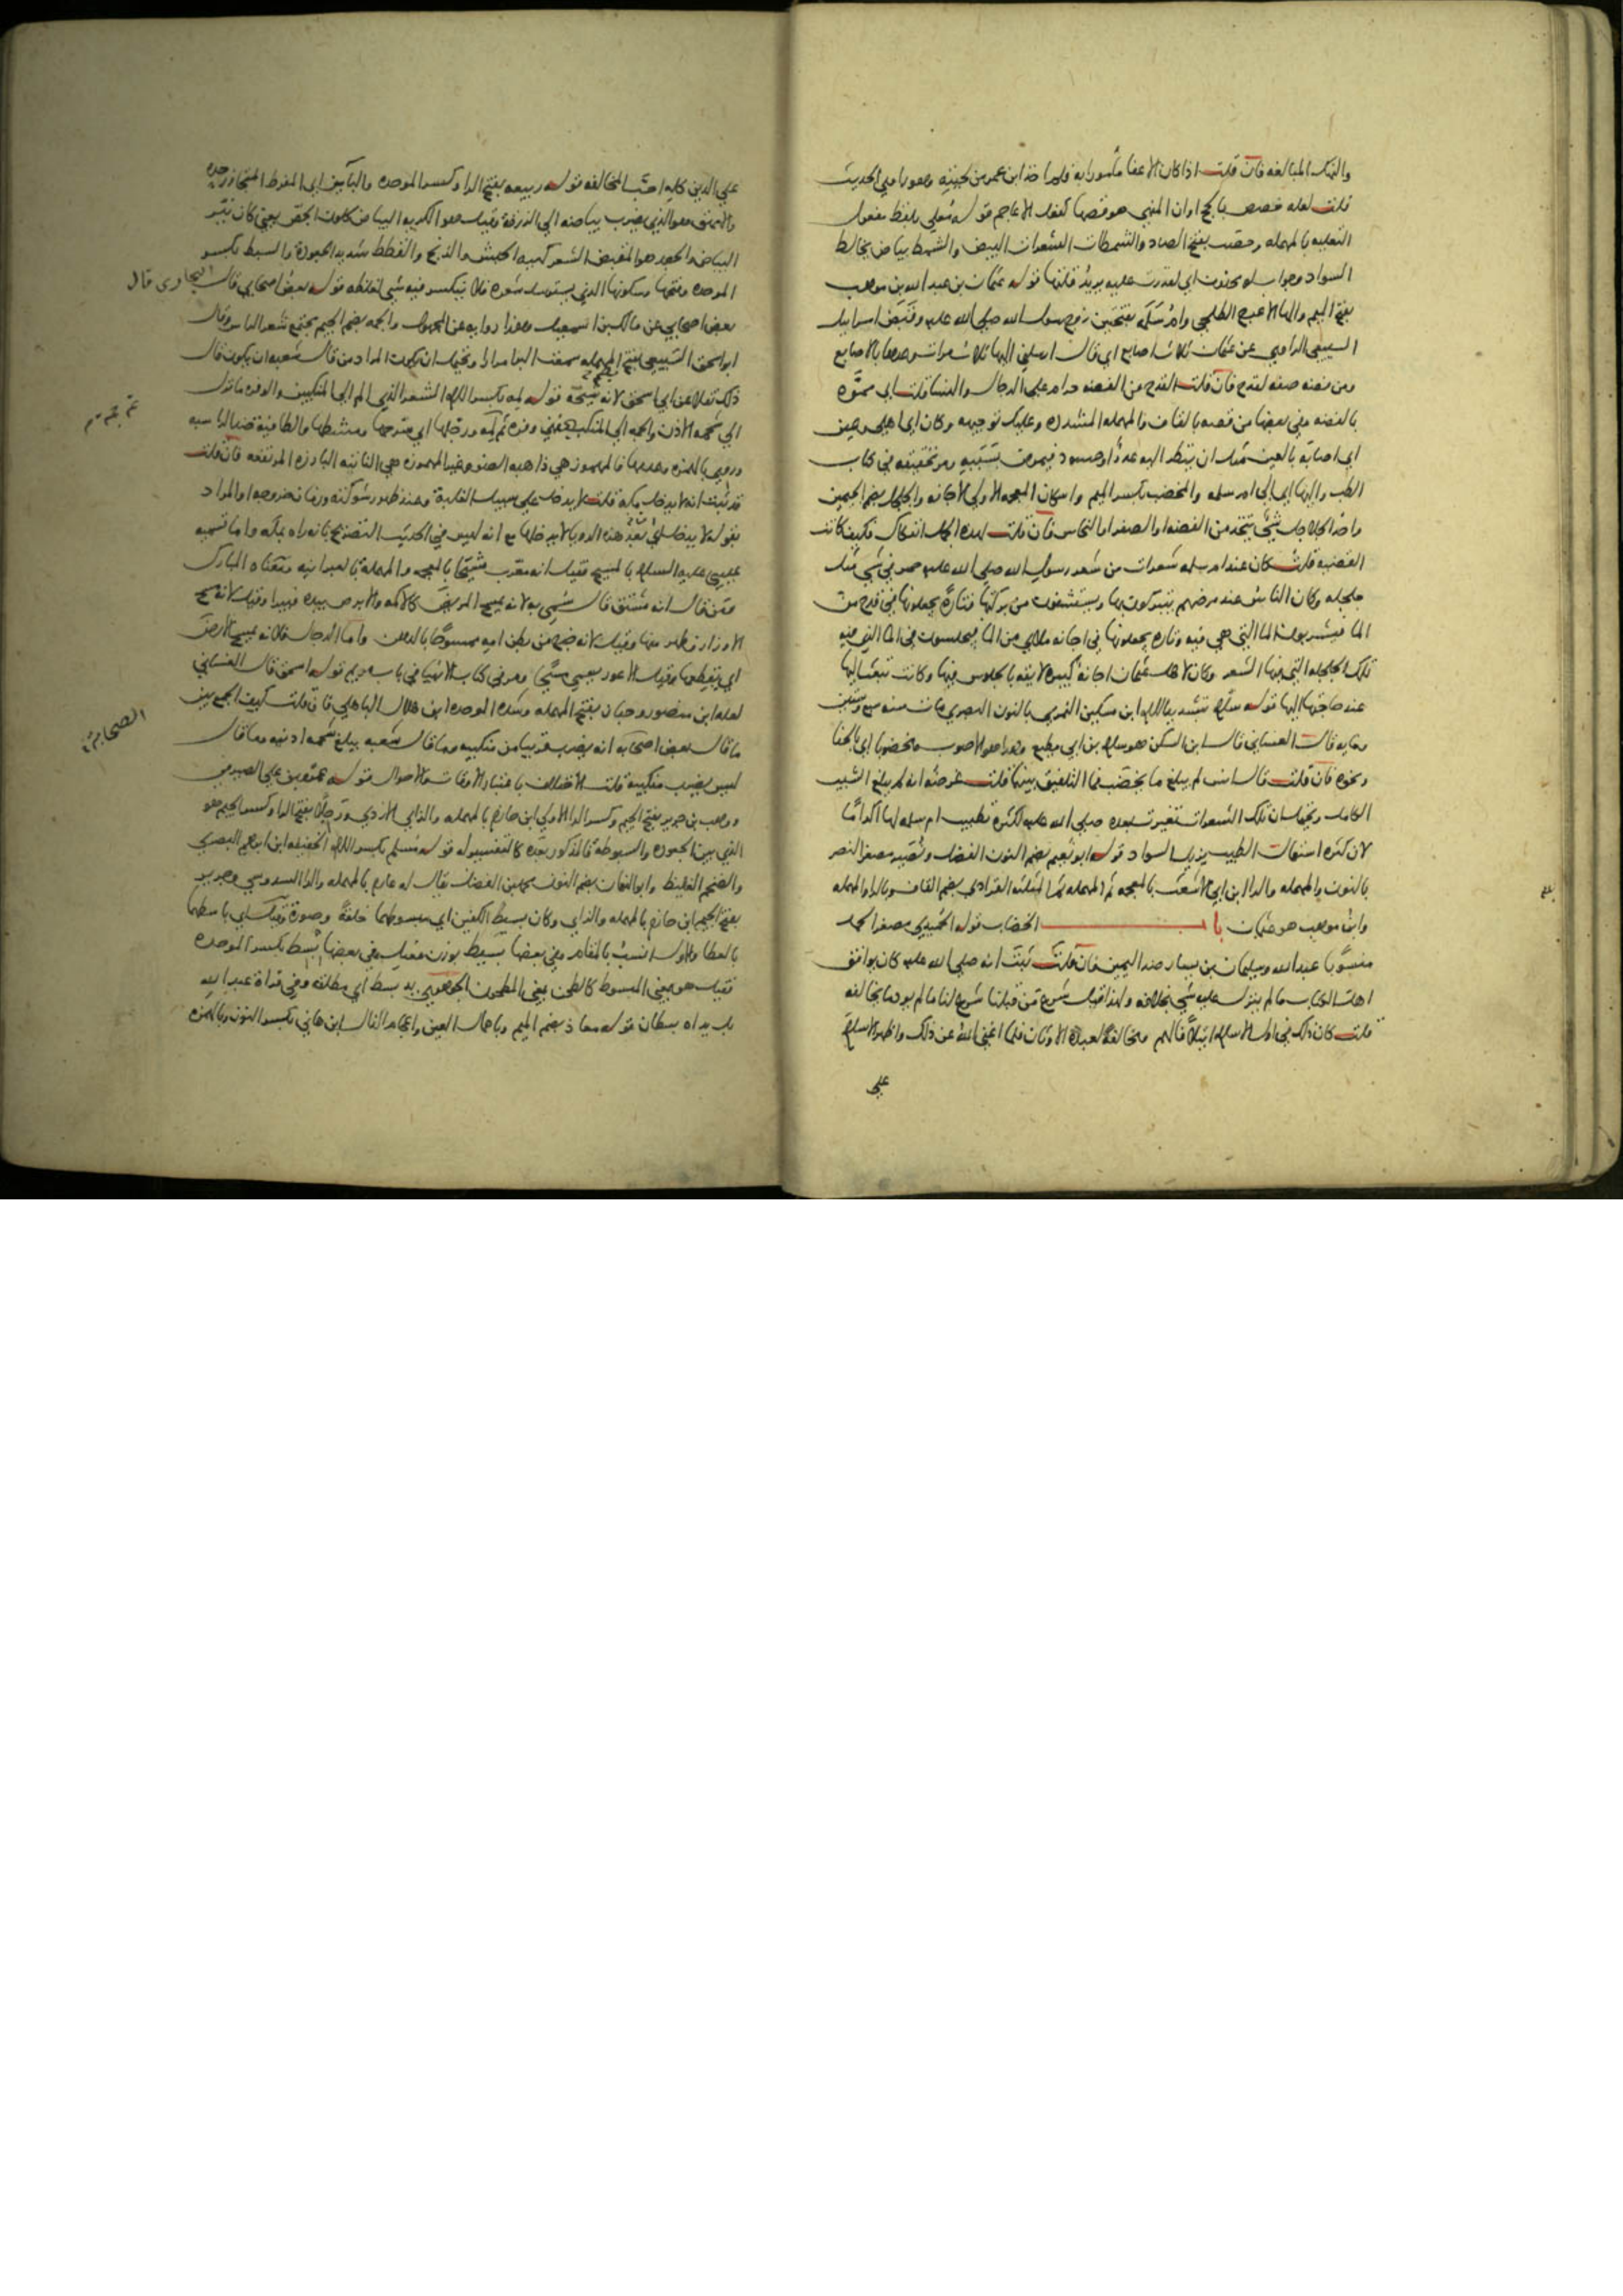 والنهك المبالغه فان قلت اذا كان الاعفا مأمورا به فلم اخذ ابن عمر من لحيته وهو راوي الحديث
قلت لعله خصص بالحج او ان المنهي هو قصها كفعل الاعاجم قوله معلى بلفظ مفعول
التعليه بالمهمله وحصب بفتح الصاد والشمطات الشعرات البيض والشمط بياض يخالط
السواد وجواب لو محذوف اي لقدرت عليه يريد قلتها قوله عثمان بن عبد الله بن موهب
بفتح الميم والها الاعرج الطلحي وام سلمه بفتحتين زوج رسول الله صلى الله عليه وقبض اسرايل
السبيعي الراوي عن عثمان ثلاث اصابع اي قال ارسلني اليها ثلاث مرات وعدها بالاصابع
ومن فضه صفه لقدح فان قلت القدح من الفضه حرام على الرجال والنسا قلت اي مموه
بالفضه وفي بعضها من قصه بالقاف والمهمله المشدده وعليك توجيهه وكان اي اهلي وعين
اي اصابه بالعين مثل ان ينظر اليه عدو او حسود فيمرض بسببه ومر تحقيقه في كتاب
الطب واليها اي الى ام سلمه والمخضب بكسر الميم واسكان المعجمه الاولى الاجانه والجلجل بضم الجيمين
واحد الجلاجل شيء يتخذ من الفضه او الصفر او النحاس فان قلت
الفضيه قلت كان عند ام سلمه شعرات من شعر رسول الله صلى الله عليه حمر في شي مثل
جلجله وكان الناس عند مرضهم يتبركون بها ويستشفون من بركتها فتارة يجعلونها في قدح من
الما فيشربون الما التي هي فيه وتاره يجعلونها في اجانه ملاى من الما فيجلسون في الما الذي فيه
تلك الجلجله التي فيها الشعر وكان لاهل عثمان اجانة كبيره لايقه بالجلوس فيها وكانت تبعث اليها
عند حاجتها اليها قوله سلام بتشديد اللام ابن مسكين النمري بالنون البصري مات سنه سبع وستين
ومايه قال الغساني قال ابن السكن هو سلام بن ابي مطيع وهذا هو الاصوب ومخضوبا اي بالحنا
ونحوه فان قلت قال انس لم يبلغ ما يخضب فما التلفيق بينهما قلت غرضه انه لم يبلغ الشيب
الكامل ويحتمل ان تلك الشعرات تغيرت بعده صلى الله عليه لكثرة تطييب ام سلمه لها اكراما
لان كثره استعمال الطيب يزيل السواد قوله ابو نعيم بضم النون الفضل ونصير مصغر النصر
بالنون والمهمله والرا ابن ابي الاشعث بالمعجمه ثم المهمله ثم المثلثه القرادي بضم القاف وبالرا والمهمله
وابن موهب هو عثمان باب الخضاب قوله الحميدي مصغر الحمد
منسوبا عبد الله وسليمان بن يسار ضد اليمين فان قلت ثبت انه صلى الله عليه كان يوافق
اهل الكتاب ما لم ينزل عليه شي بخلافه ولهذا قيل شرع من قبلنا شرع لنا ما لم يرد ما يخالفه
قلت كان ذلك في اول الاسلام ايتلافا لهم ومخالفة لعبدة الاوثان فلما اغنى الله عن ذلك واظهر الاسلام
على
على الدين كله احب المخالفه قوله ربيعه بفتح الرا وكسر الموحده والباين اي المفرط المتجاوز حده
والامهق هو الذي يضرب بياضه الى الزرقة وقيل هو الكريه البياض كلون الجص يعني كان نير
البياض والجعد هو المقبض الشعر كهيه الحبش والزنج والقطط شديد الجعودة والسبط بكسر
الموحده وفتحها وسكونها الذي يسترسل شعره فلا يتكسر فيه شي لغلظه قوله بعض اصحابي قال البخاري قال
بعض اصحابي عن مالك بن اسمعيل وهذا روايه عن المجهول والجمه بضم الجيم مجتمع شعر الراس وقال
ابو اسحق السبيعي بفتح المهمله سمعت البرا مرارا ويحتمل ان يكون المراد من قال شعبه ان يكون قال
ذلك نقلا عن ابي اسحق لانه شيخه قوله لمه بكسر اللام الشعر الذي الم الى المنكبين والوفره ما نزل
الى شحمه الاذن والجمه الى المنكب
وروي بالهمزه وعدمها فالمهموز هي ذاهبه الضوء وغير المهموزه هي الناتيه البارزه المرتفعه فان قلت
قد ثبت انه لا يدخل مكه قلت لا يدخل على سبيل الغلبة وعند ظهور شوكته وزمان خروجه او المراد
بقوله لا يدخل اي بعد هذه الرويا لا يدخلها مع انه ليس في الحديث التصريح بانه راه بمكه واما تسميه
عيسى عليه السلام بالمسيح فقيل انه معرب مشيحا بالمعجمه والمهملة بالعبرانيه ومعناه المبارك
ومن قال انه مشتق قال سمي به لانه يمسح المريض كالاكمه والابرص بيده فيبرا وقيل لانه مسح
الاوزار وطهر منها وقيل لانه خرج من بطن امه ممسوحا بالدهن واما الدجال فلانه يمسح الارض
اي يقطعها وقيل الاعور يسمى مسيحا ومر في كتاب الانبيا في باب مريم قوله اسحق قال الغساني
لعله ابن منصور وحبان بفتح المهمله وشده الموحده ابن هلال الباهلي فان قلت كيف الجمع بين
ما قال بعض اصحابه انه يضرب قريبا من منكبيه وما قال شعبه يبلغ شحمه اذنيه وما قال
انس يضرب منكبيه قلت الاختلاف باعتبار الاوقات والاحوال قوله عمرو بن علي الصيرفي
ووهب بن جرير بفتح الجيم وكسر الرا الاولى ابن حازم بالمهمله والزاي الازدي ورجلا بفتح الرا وكسر الجيم هو
الذي بين الجعوده والسبوطه فالمذكور بعده كالتفسير له قوله مسلم بكسر اللام الخفيفه ابن ابراهيم البصري
والضخم الغليظ وابو النعمان بضم النون محمد بن الفضل يقال له عارم بالمهمله والرا السدوسي وجرير
بفتح الجيم ابن حازم بالمهمله والزاي وكان بسيط الكفين اي مبسوطهما خلقة وصورة وقيل اي باسطهما
بالعطا والاول انسب بالمقام وفي بعضها بسيط بوزن فعيل وفي بعضها بسط بكسر الموحده
فقيل هو بمعنى المبسوط كالطحن بمعنى المطحون الجوهري يد بسط اي مطلقه وفي قراة عبد الله
بل يداه بسطان قوله معاذ بضم الميم وباهمال العين واعجام الذال ابن هاني بكسر النون وبالهمزه